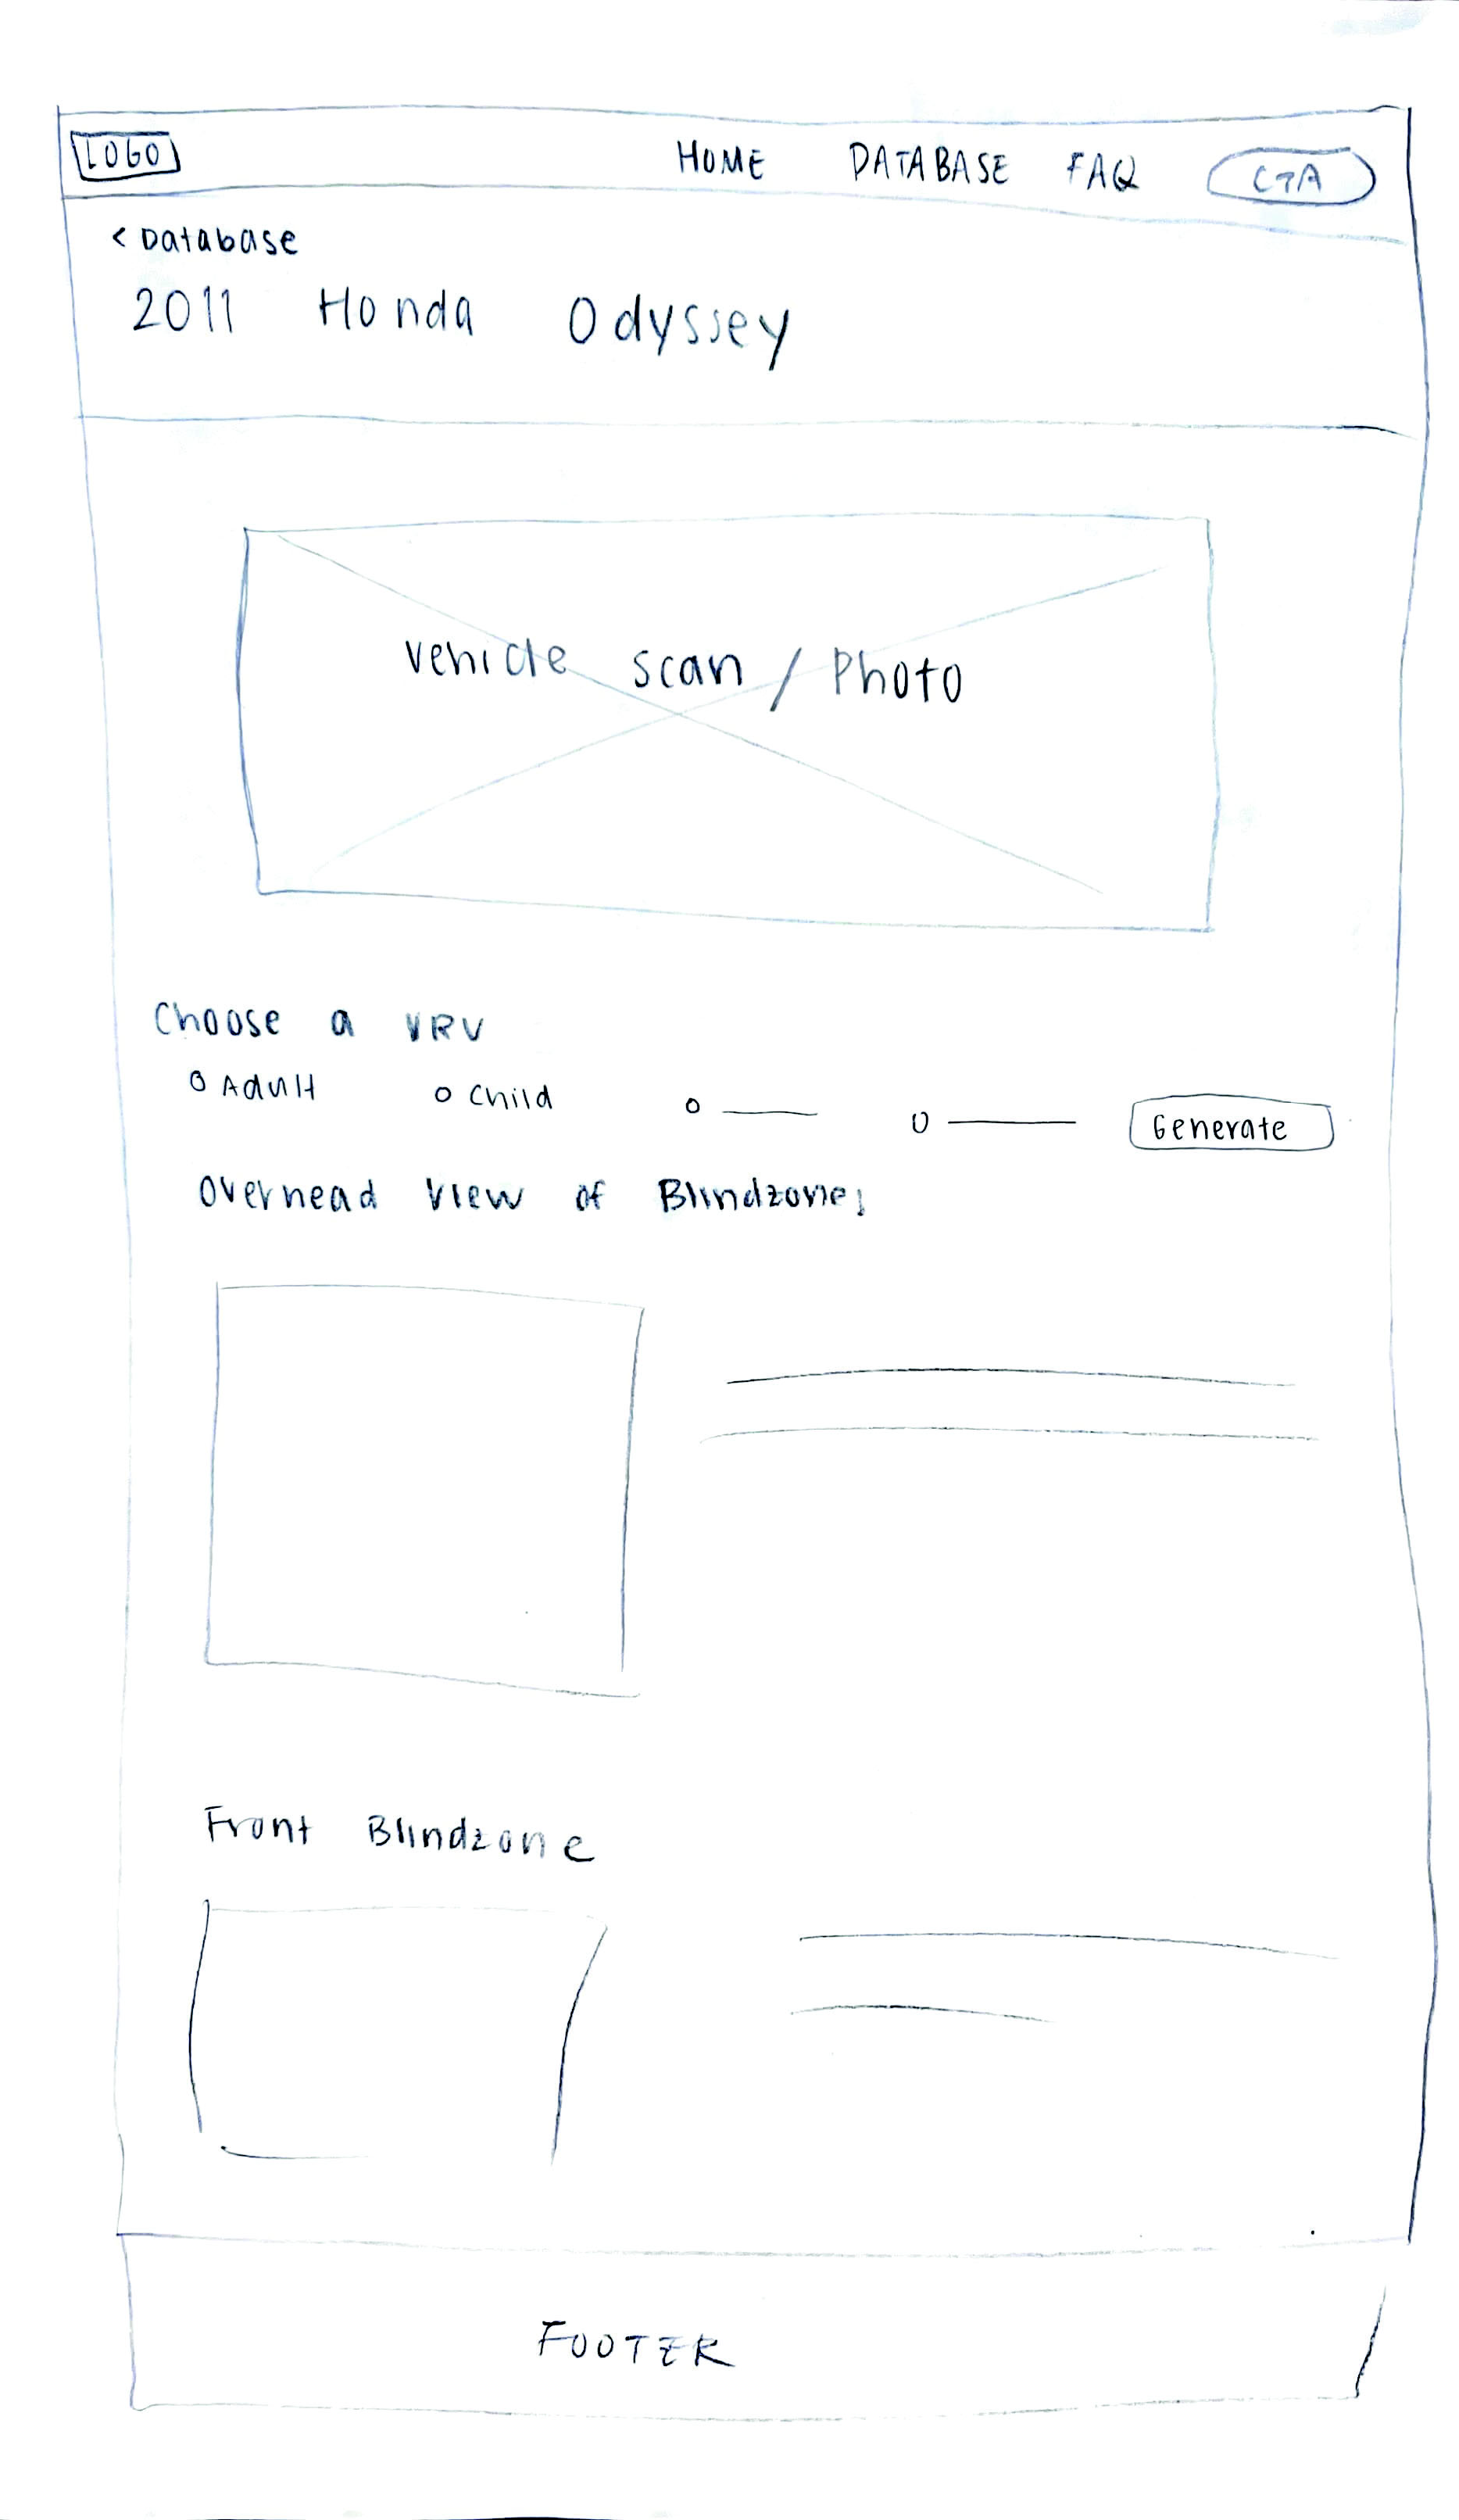 LOGO HOME DATABASE FAQ CTA
< Database
2011 Honda Odyssey
Vehicle scan / Photo
Choose a VRV
Adult Child Generate
Overhead View of Blindzone;
Front Blindzone
FOOTER